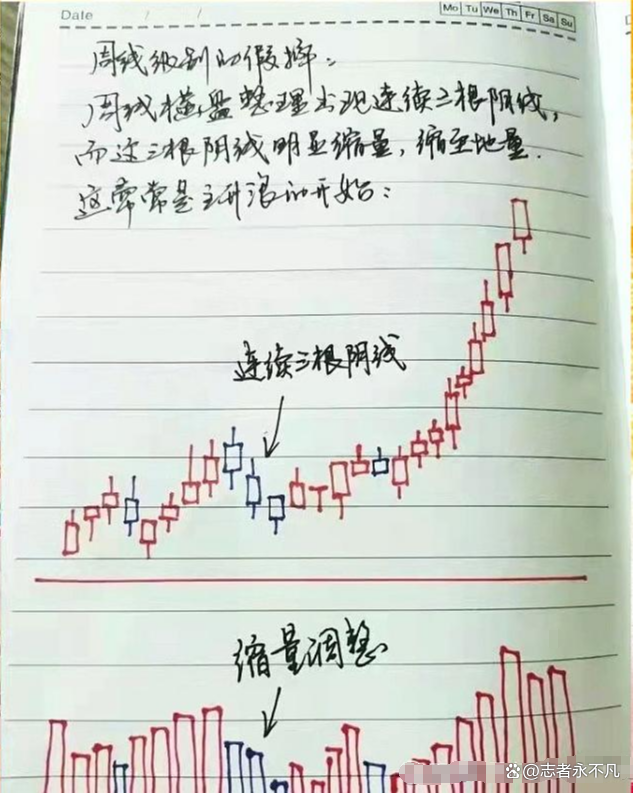 Date / /
Mo Tu We Th Fr Sa Su
周线级别的假摔：
周线横盘整理出现连续三根阴线，
而这三根阴线明显缩量，缩至地量.
这常常是主升浪的开始：
连续三根阴线
缩量调整
@志者永不凡